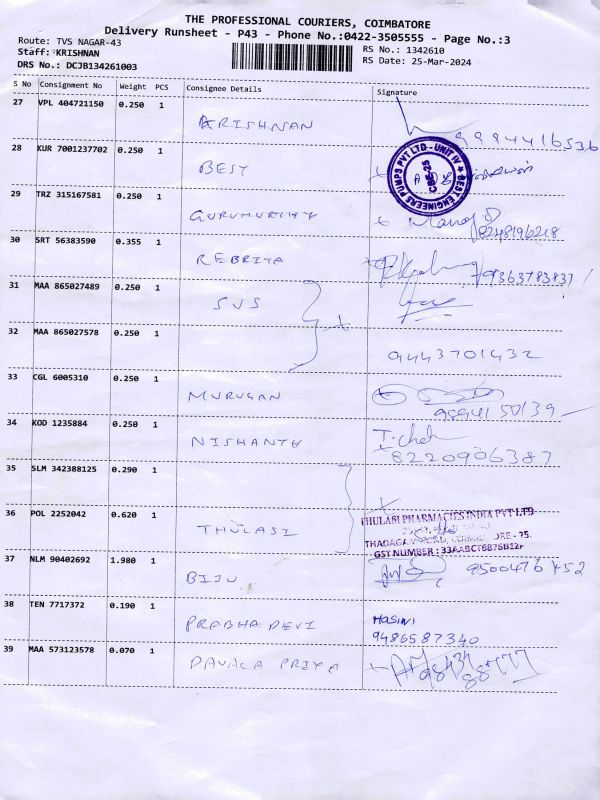 THE PROFESSIONAL COURIERS, COIMBATORE
Delivery Runsheet - P43 - Phone No.:0422-3505555 - Page No.:3
Route: TVS NAGAR-43
RS No.: 1342610
Staff: KRISHNAN
RS Date: 25-Mar-2024
DRS No.: DCJB134261003
S No Consignment No Weight PCS Consignee Details Signature
27 VPL 404721150 0.250 1
KRISHNAN 9994416536
28 KUR 7001237702 0.250 1
BEST
BEST ENGINEERS PUMPS PVT LTD - UNIT IV
CBE-25
29 TRZ 315167581 0.250 1
GURUMURTHY Manoj
8248196218
30 SRT 56383590 0.355 1
REBRIYA 9363783837
31 MAA 865027489 0.250 1
SVS
32 MAA 865027578 0.250 1
9443701432
33 CGL 6005310 0.250 1
MURUGAN
9894150139
34 KOD 1235884 0.250 1
NISHANTH
8220906387
35 SLM 342388125 0.290 1
36 POL 2252042 0.620 1
THULASI
THULASI PHARMACIES INDIA PVT LTD
GST NUMBER : 33AABCT6876B1ZF
37 NLM 90402692 1.980 1
BIJU
38 TEN 7717372 0.190 1
PRABHA DEVI
Hasini
9486587340
39 MAA 573123578 0.070 1
PRIYA